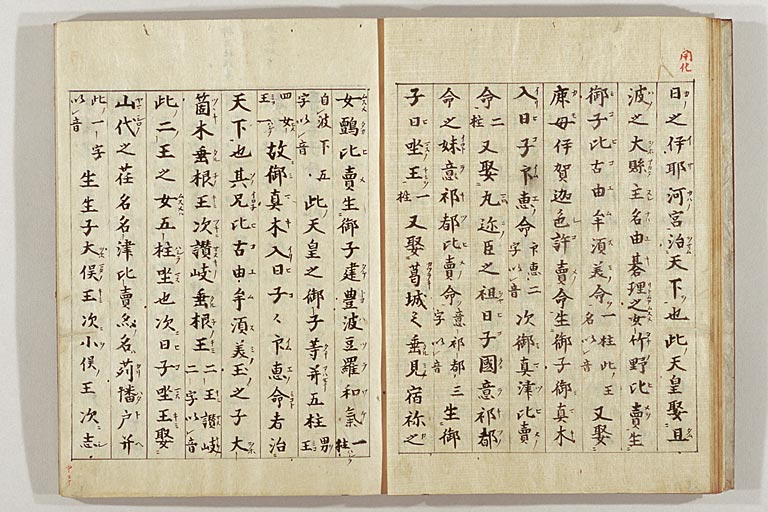 開化
日之伊耶河宮治天下也此天皇娶旦
波之大縣主名由碁理之女竹野比賣生
御子比古由牟須美命一柱此王名以音又娶
庶母伊賀迦色許賣命生御子御真木
入日子印恵命印恵二字以音次御真津比賣
命二柱又娶丸迩臣之祖日子國意祁都
命之妹意祁都比賣命意祁都三字以音生御
子日坐王一柱又娶葛城之垂見宿祢之
女鸇比賣生御子建豊波豆羅和氣一柱
自波下五字以音此天皇之御子等并五柱男王
四女王一故御真木入日子々印恵命者治
天下也其兄比古由牟須美王之子大
箇木垂根王次讃岐垂根王二王讃岐二字以音
此二王之女五柱坐也次日子坐王娶
山代之荏名名津比賣亦名苅幡戸弁
此一字以音生生子大俣王次小俣王次志